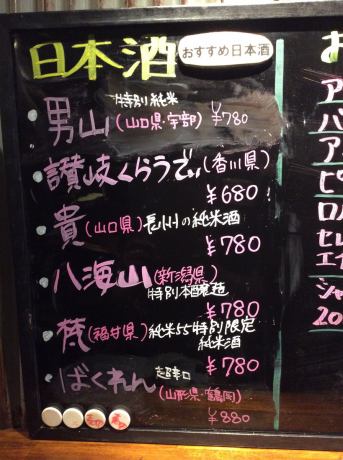 日本酒
おすすめ日本酒
特別純米
男山(山口県・宇部) ¥780
讃岐くらうでぃ(香川県)
¥680
貴(山口県)長州の純米酒
¥780
八海山(新潟県)
特別本醸造
¥780
梵(福井県)純米55特別限定
純米酒
¥780
ばくれん 超辛口
(山形県・鶴岡)
¥880
お
ア
バ
ア
ピ
ロ
セレ
エイ
シャ
20